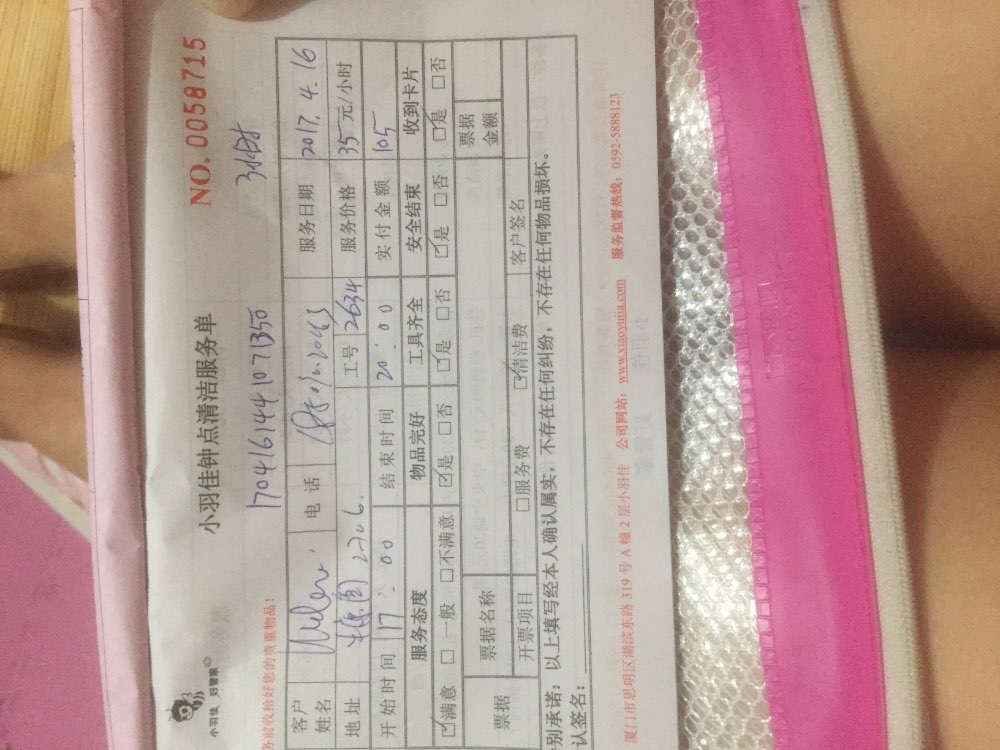 小羽佳 好管家
小羽佳钟点清洁服务单
NO. 0058715
务前收拾好您的贵重物品!
170416144107 1350
3小时
客户姓名 Weler 电话 服务日期 2017. 4. 16
地址 2706. 工号 2634 服务价格 35元/小时
开始时间 17:00 结束时间 20:00 实付金额 105
服务态度 物品完好 工具齐全 安全结束 收到卡片
☑满意 □一般 □不满意 ☑是 □否 ☑是 □否 ☑是 □否 ☑是 □否
票据 票据名称 票据金额
开票项目 □服务费 ☑清洁费 客户签名
别承诺:以上填写经本人确认属实,不存在任何纠纷,不存在任何物品损坏。
认签名:
厦门市思明区湖滨东路 319 号 A 幢 2 层小羽佳 公司网站:www.xiaoyujia.com 服务监督热线:0592-5888123